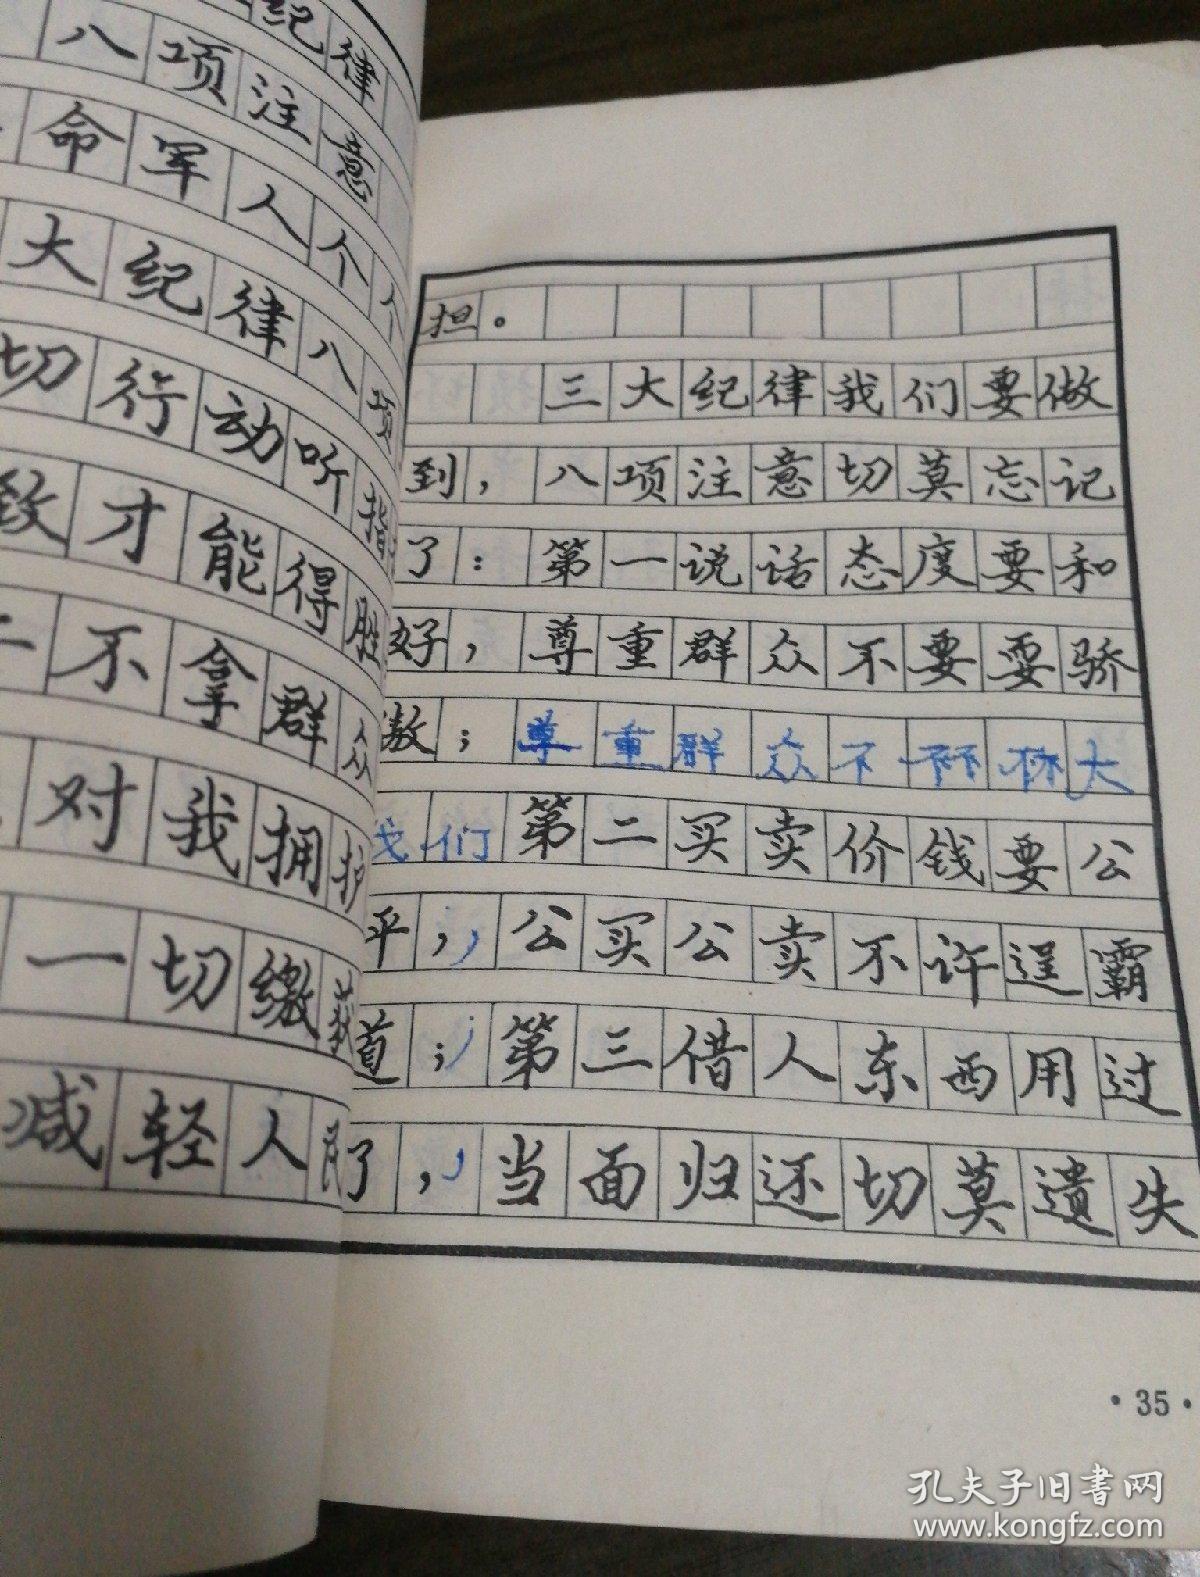 纪律
八项注意
命军人个个
大纪律八项
切行动听指
致才能得胜
二不拿群众
对我拥护
一切缴获
减轻人民
担。
三大纪律我们要做
到，八项注意切莫忘记
了：第一说话态度要和
好，尊重群众不要耍骄
傲；尊重群众不
们第二买卖价钱要公
平，，公买公卖不许逞霸
道；第三借人东西用过
了，，当面归还切莫遗失
·35·
孔夫子旧书网
www.kongfz.com